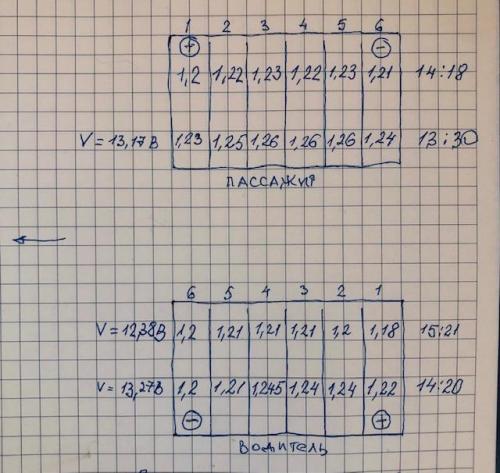 1 2 3 4 5 6
+ −
1,2 1,22 1,23 1,22 1,23 1,21 14:18
V = 13,17В 1,23 1,25 1,26 1,26 1,26 1,24 13:30
ПАССАЖИР
6 5 4 3 2 1
V = 12,38В 1,2 1,21 1,21 1,21 1,2 1,18 15:21
V = 13,27В 1,2 1,21 1,245 1,24 1,24 1,22 14:20
− +
ВОДИТЕЛЬ